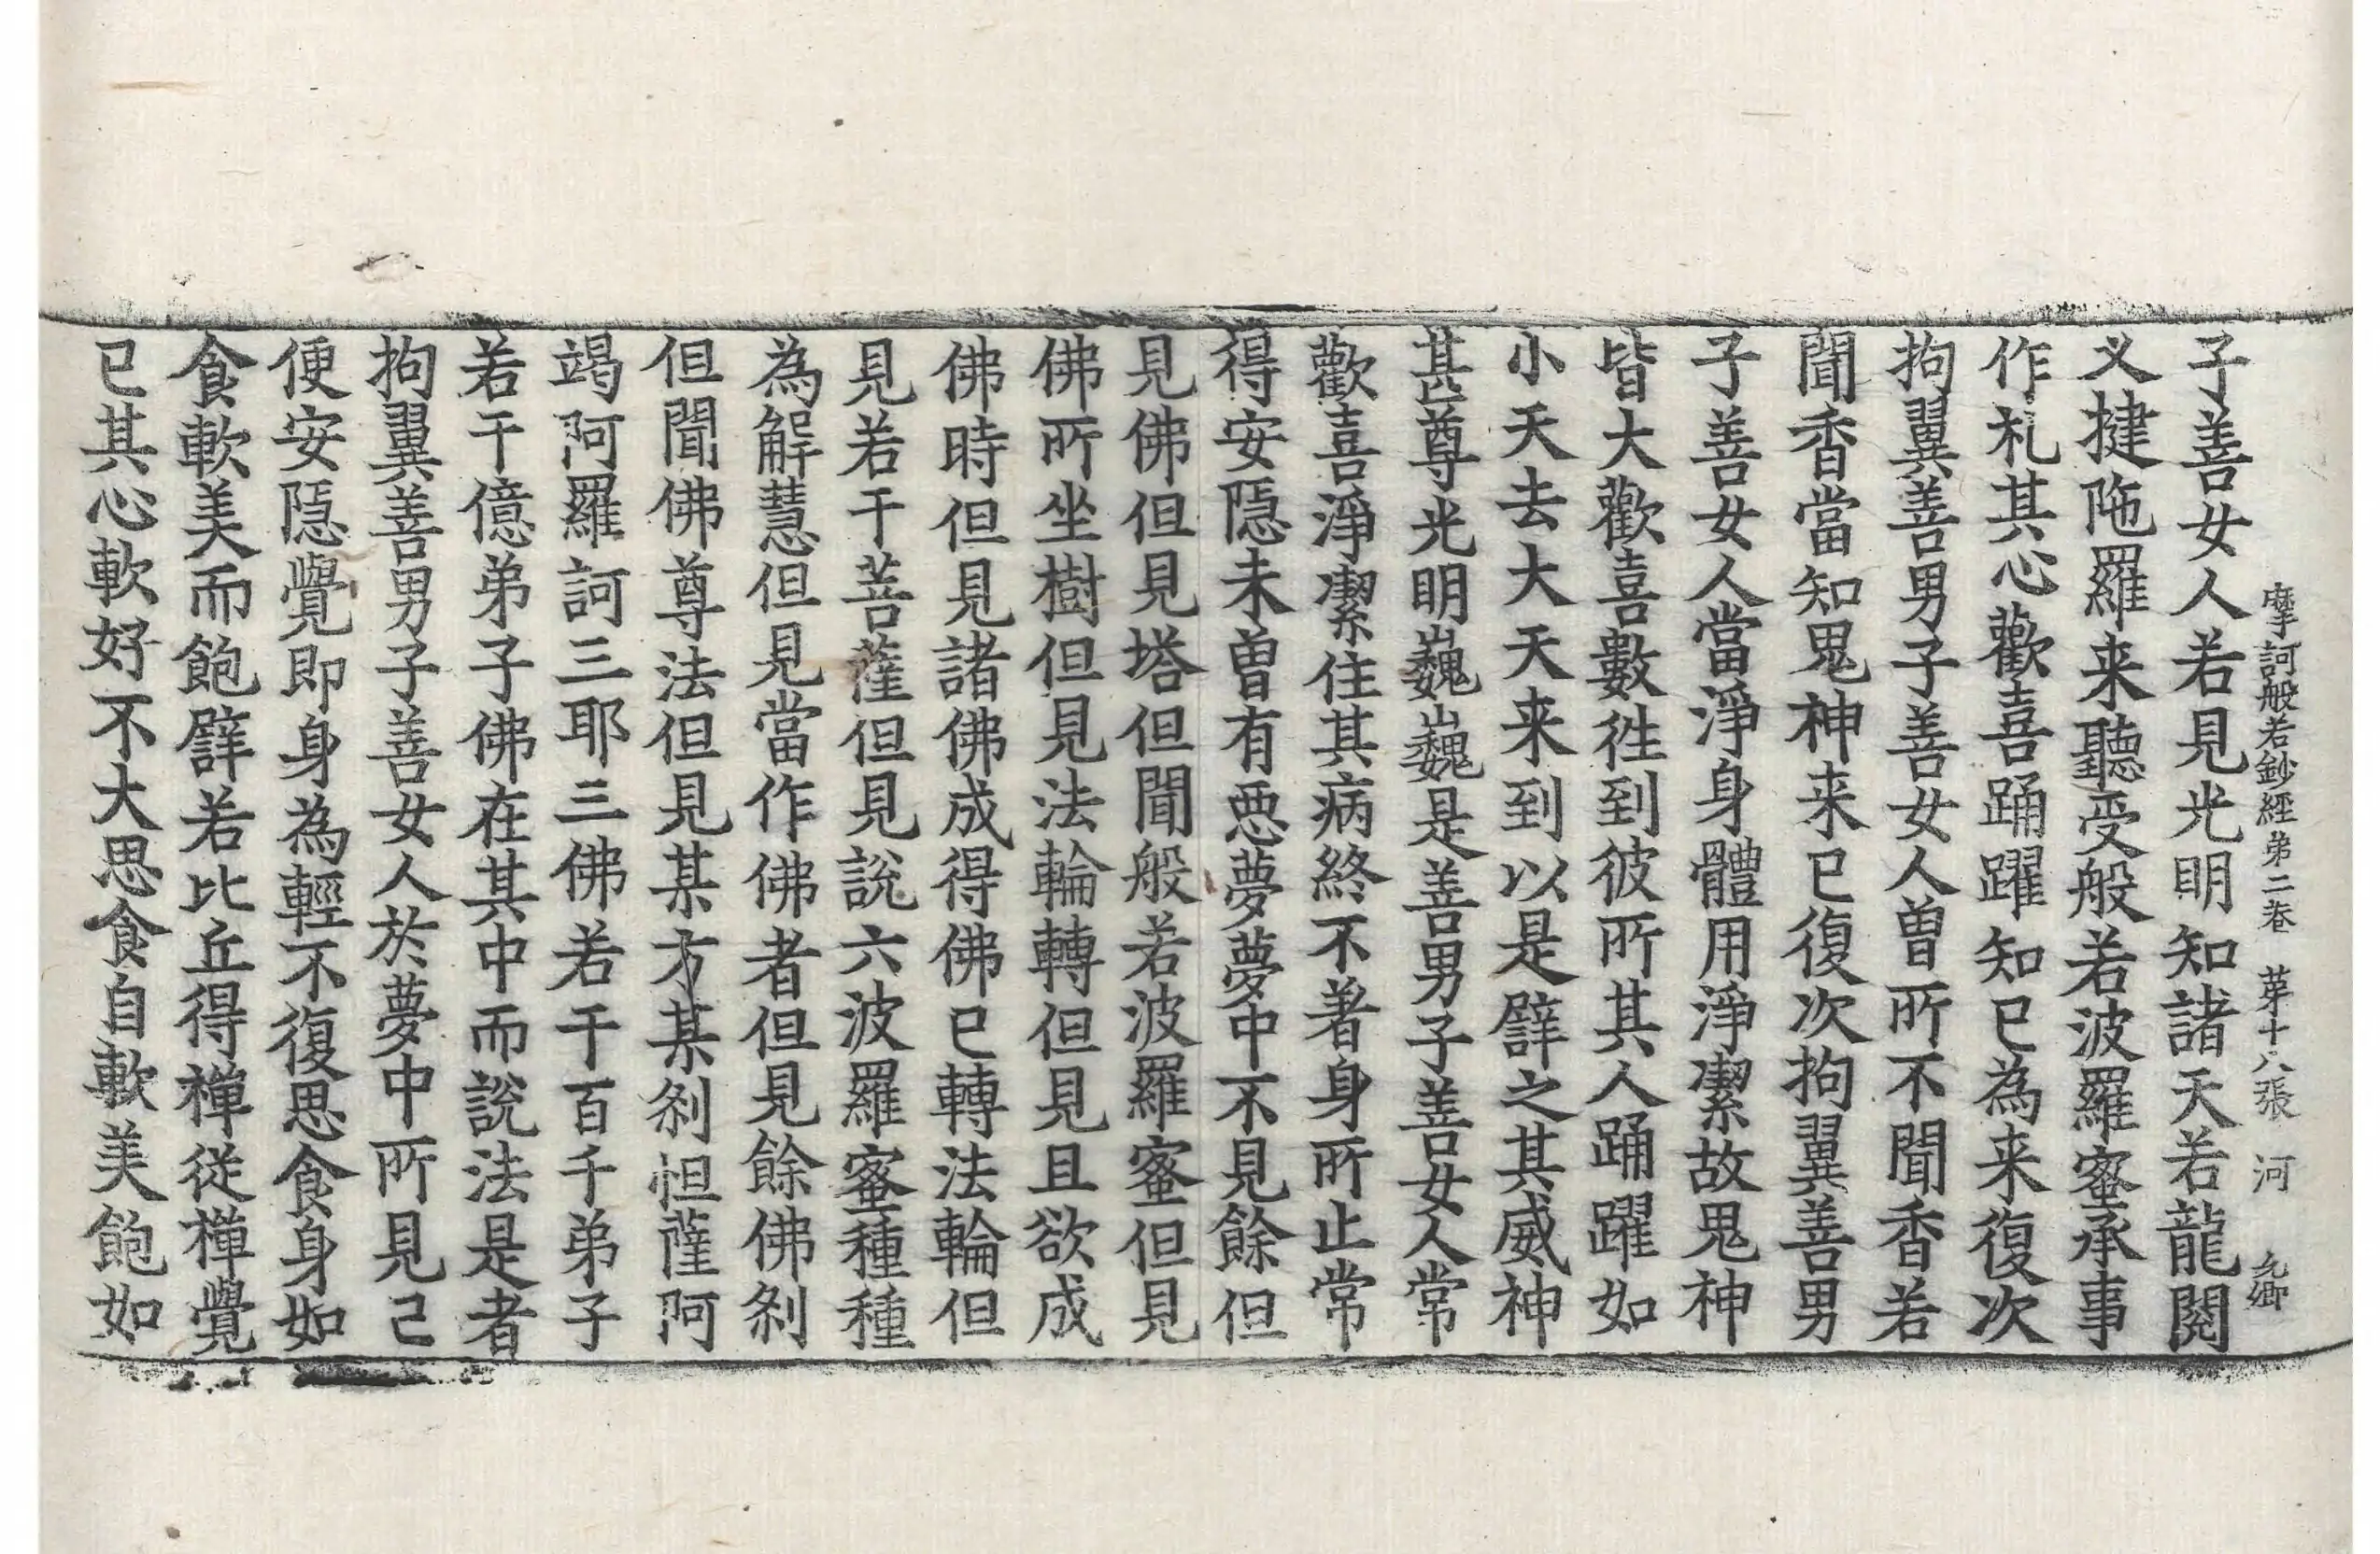 摩訶般若鈔經第二卷 第十八張 河 允卿
子善女人若見光明知諸天若龍閱
叉揵陁羅来聽受般若波羅蜜承事
作札其心歡喜踊躍知已為来復次
拘翼善男子善女人曽所不聞香若
聞香當知鬼神来已復次拘翼善男
子善女人當淨身體用淨潔故鬼神
皆大歡喜數徃到彼所其人踊躍如
小天去大天来到以是譬之其威神
甚尊光明巍巍是善男子善女人常
歡喜淨潔住其病終不著身所止常
得安隱未曽有惡夢夢中不見餘但
見佛但見塔但聞般若波羅蜜但見
佛所坐樹但見法輪轉但見且欲成
佛時但見諸佛成得佛已轉法輪但
見若干菩薩但見說六波羅蜜種種
為解慧但見當作佛者但見餘佛剎
但聞佛尊法但見某方某剎怛薩阿
竭阿羅訶三耶三佛若干百千弟子
若干億弟子佛在其中而說法是者
拘翼善男子善女人於夢中所見已
便安隱覺即身為輕不復思食身如
食軟美而飽譬若比丘得禪從禪覺
已其心軟好不大思食自軟美飽如